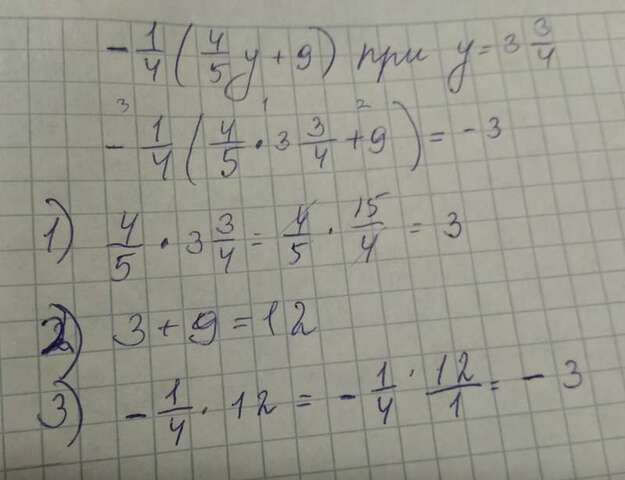 -1/4(4/5y+9) при y=3 3/4
-1/4(4/5·3 3/4+9)=-3
1) 4/5·3 3/4=4/5·15/4=3
2) 3+9=12
3) -1/4·12=-1/4·12/1=-3